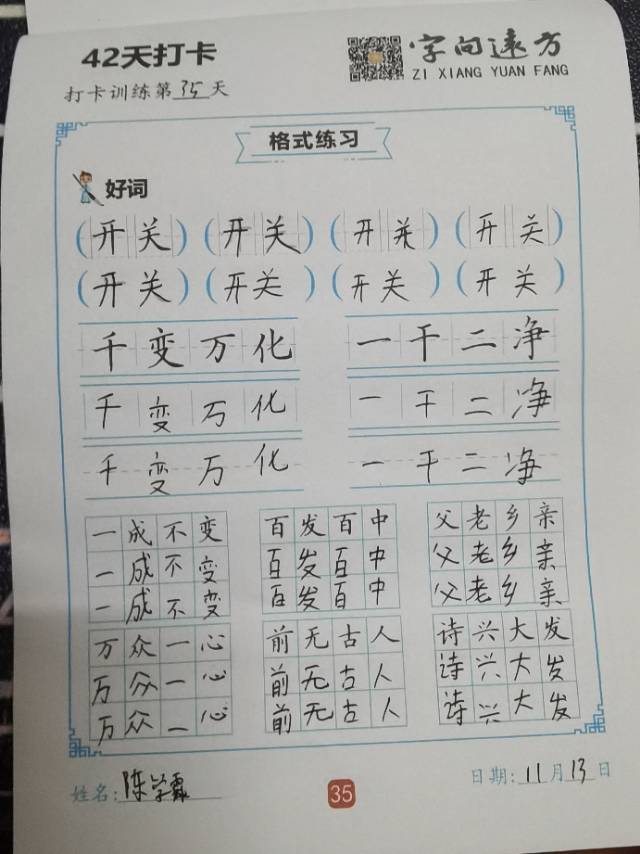 42天打卡 字向远方
ZI XIANG YUAN FANG
打卡训练第35天
格式练习
好词
(开关) (开关) (开关) (开关)
(开关) (开关) (开关) (开关)
千变万化 一干二净
千变万化 一干二净
千变万化 一干二净
一成不变 百发百中 父老乡亲
一成不变 百发百中 父老乡亲
一成不变 百发百中 父老乡亲
万众一心 前无古人 诗兴大发
万众一心 前无古人 诗兴大发
万众一心 前无古人 诗兴大发
姓名:陈学霖 35 日期:11月13日